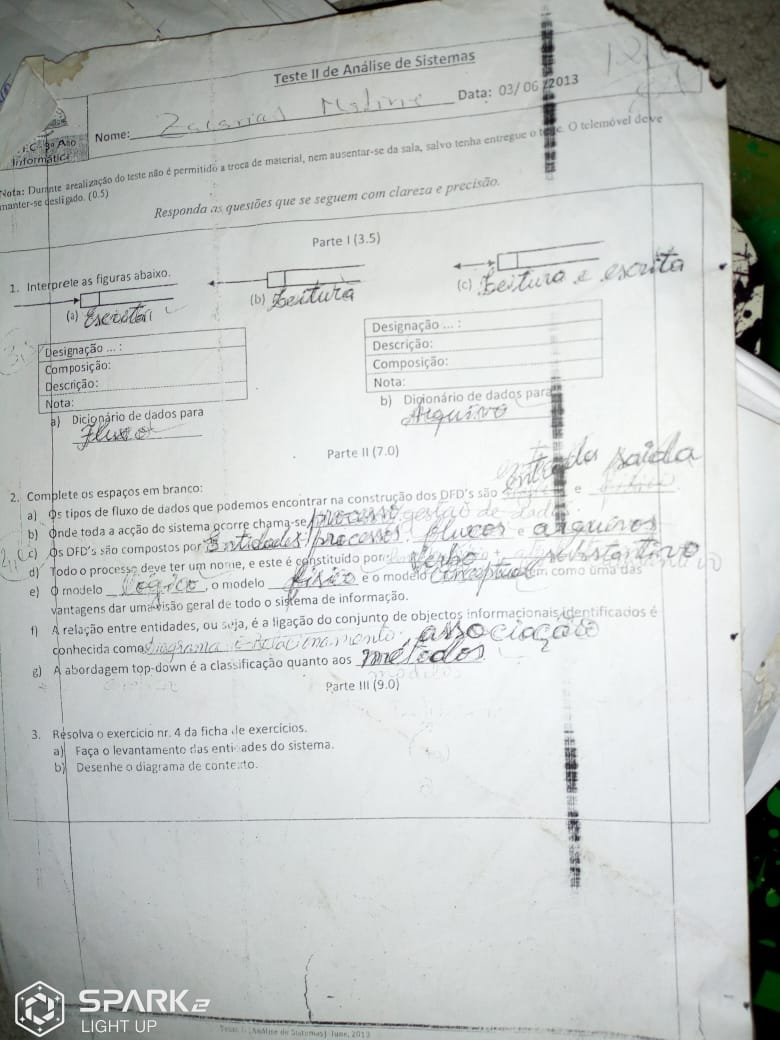 Teste II de Análise de Sistemas
Data: 03/06/2013
Nome: Zacarias
3º Ano
Informática
Nota: Durante arealização do teste não é permitido a troca de material, nem ausentar-se da sala, salvo tenha entregue o teste. O telemóvel deve
manter-se desligado. (0.5)
Responda as questões que se seguem com clareza e precisão.
Parte I (3.5)
1. Interprete as figuras abaixo.
(a) Escrita
(b) Leitura
(c) Leitura e escrita
Designação ... :
Composição:
Descrição:
Nota:
a) Dicionário de dados para
Fluxo
Designação ... :
Descrição:
Composição:
Nota:
b) Dicionário de dados para
Arquivo
Parte II (7.0)
2. Complete os espaços em branco:
a) Os tipos de fluxo de dados que podemos encontrar na construção dos DFD's são entrada e saída
b) Onde toda a acção do sistema ocorre chama-se processo
c) Os DFD's são compostos por Entidades, processos, flucos e arquivos
d) Todo o processo deve ter um nome, e este é constituído por verbo + substantivo
e) O modelo lógico, o modelo físico e o modelo Conceptual tem como uma das
vantagens dar uma visão geral de todo o sistema de informação.
f) A relação entre entidades, ou seja, é a ligação do conjunto de objectos informacionais identificados é
conhecida como associação
g) A abordagem top-down é a classificação quanto aos métodos
Parte III (9.0)
3. Resolva o exercicio nr. 4 da ficha de exercícios.
a) Faça o levantamento das entidades do sistema.
b) Desenhe o diagrama de contexto.
Teste II [Análise de Sistemas] June, 2013
SPARK 2
LIGHT UP